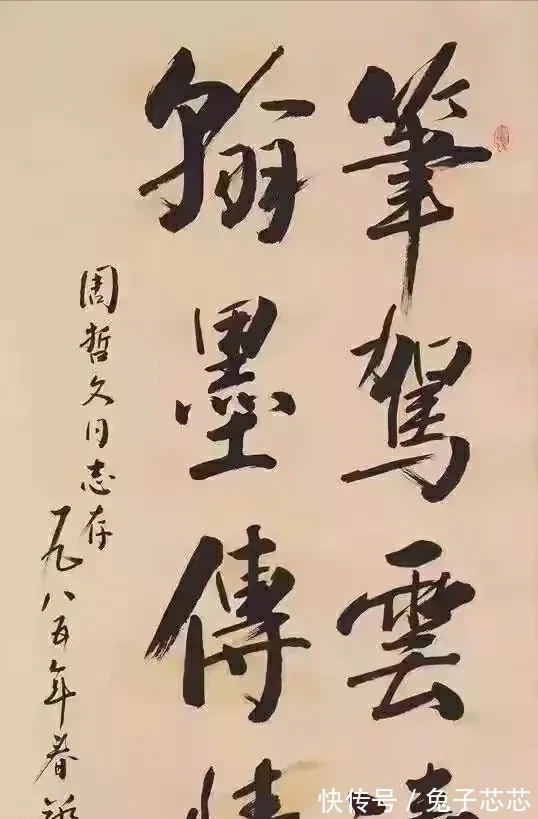 筆駕雲
翰墨傳情
周哲文同志存
一九八五年春
快传号／兔子芯芯